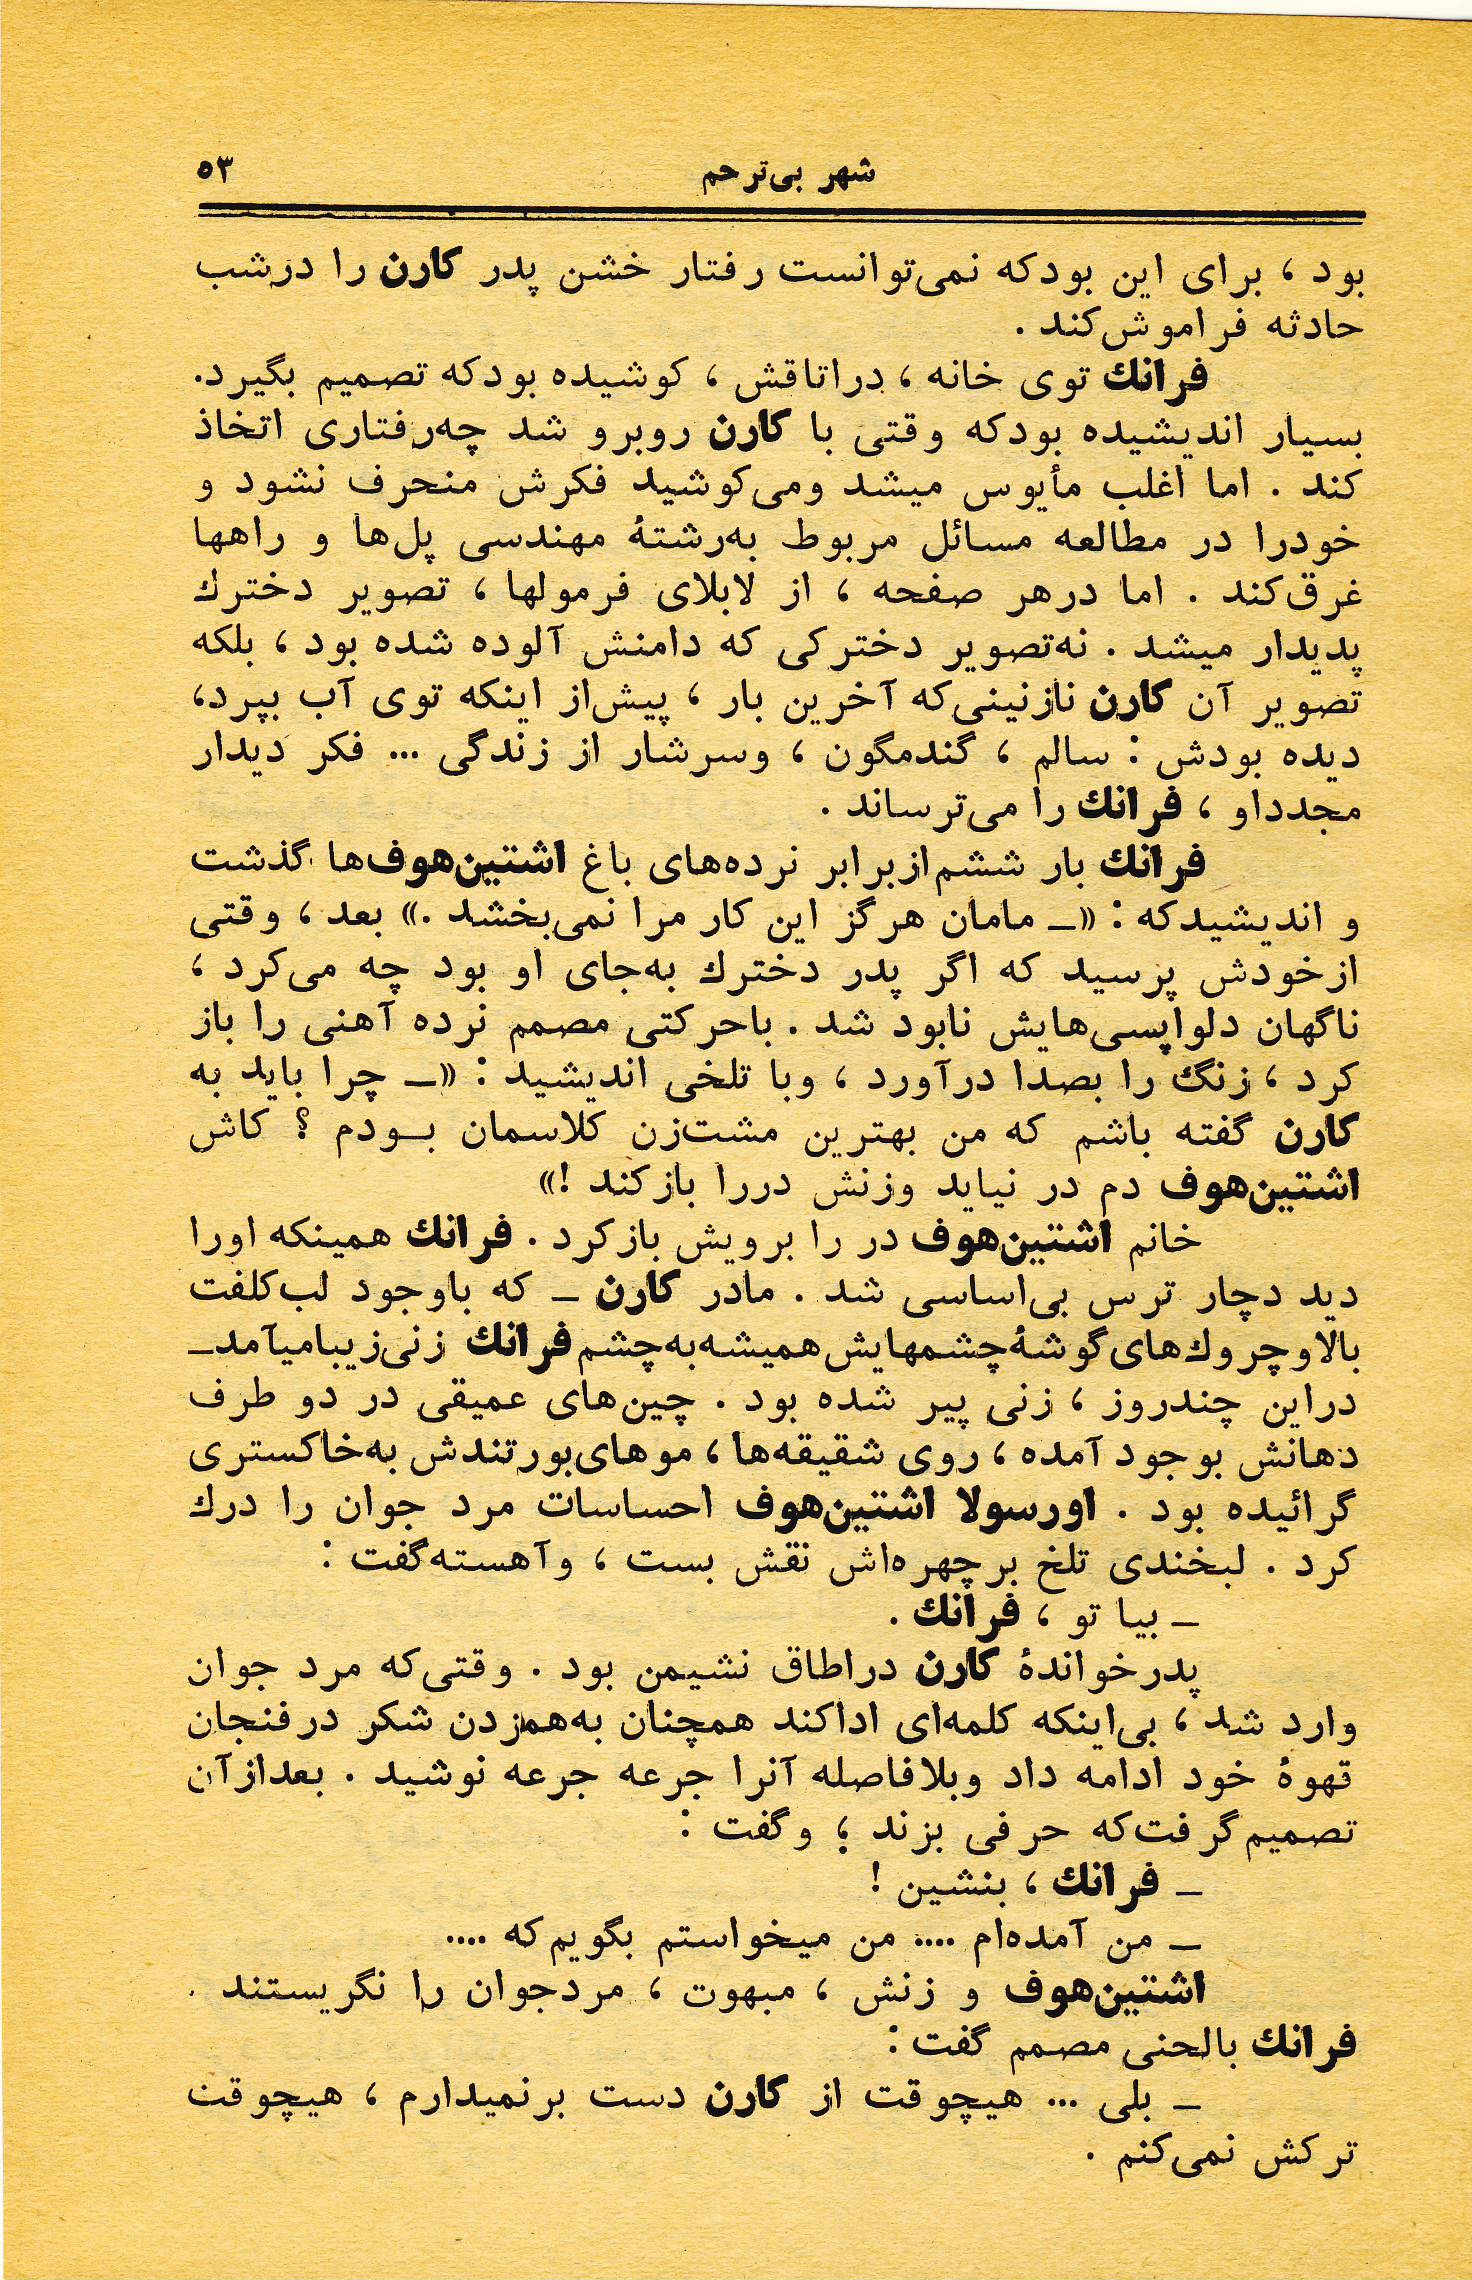 شهر بی‌ترحم ۵۳
بود ، برای این بودکه نمی‌توانست رفتار خشن پدر کارن را درشب
حادثه فراموش‌کند .
فرانك توی خانه ، دراتاقش ، کوشیده بودکه تصمیم بگیرد.
بسیار اندیشیده بودکه وقتی با کارن روبرو شد چه‌رفتاری اتخاذ
کند . اما اغلب مأیوس میشد ومی‌کوشید فکرش منحرف نشود و
خودرا در مطالعه مسائل مربوط به‌رشتهٔ مهندسی پل‌ها و راهها
غرق‌کند . اما درهر صفحه ، از لابلای فرمولها ، تصویر دخترك
پدیدار میشد . نه‌تصویر دخترکی که دامنش آلوده شده بود ، بلکه
تصویر آن کارن نازنینی‌که آخرین بار ، پیش‌از اینکه توی آب بپرد،
دیده بودش : سالم ، گندمگون ، وسرشار از زندگی ... فکر دیدار
مجدداو ، فرانك را می‌ترساند .
فرانك بار ششم‌ازبرابر نرده‌های باغ اشتین‌هوف‌ها گذشت
و اندیشیدکه : «ـ مامان هرگز این کار مرا نمی‌بخشد .» بعد ، وقتی
ازخودش پرسید که اگر پدر دخترك به‌جای او بود چه می‌کرد ،
ناگهان دلواپسی‌هایش نابود شد . باحرکتی مصمم نرده آهنی را باز
کرد ، زنگ را بصدا درآورد ، وبا تلخی اندیشید : «ـ چرا باید به
کارن گفته باشم که من بهترین مشت‌زن کلاسمان بـودم ؟ کاش
اشتین‌هوف دم در نیاید وزنش دررا بازکند !»
خانم اشتین‌هوف در را برویش بازکرد . فرانك همینکه اورا
دید دچار ترس بی‌اساسی شد . مادر کارن ـ که باوجود لب‌کلفت
بالاوچروك‌های‌گوشهٔ‌چشمهایش‌همیشه‌به‌چشم فرانك زنی‌زیبامیآمدـ
دراین چندروز ، زنی پیر شده بود . چین‌های عمیقی در دو طرف
دهانش بوجود آمده ، روی شقیقه‌ها ، موهای‌بورتندش به‌خاکستری
گرائیده بود . اورسولا اشتین‌هوف احساسات مرد جوان را درك
کرد . لبخندی تلخ برچهره‌اش نقش بست ، وآهسته‌گفت :
ـ بیا تو ، فرانك .
پدرخواندهٔ کارن دراطاق نشیمن بود . وقتی‌که مرد جوان
وارد شد ، بی‌اینکه کلمه‌ای اداکند همچنان به‌هم‌زدن شکر درفنجان
قهوهٔ خود ادامه داد وبلافاصله آنرا جرعه جرعه نوشید . بعدازآن
تصمیم‌گرفت‌که حرفی بزند ؛ وگفت :
ـ فرانك ، بنشین !
ـ من آمده‌ام .... من میخواستم بگویم‌که ....
اشتین‌هوف و زنش ، مبهوت ، مردجوان را نگریستند .
فرانك بالحنی مصمم گفت :
ـ بلی ... هیچوقت از کارن دست برنمیدارم ، هیچوقت
ترکش نمی‌کنم .